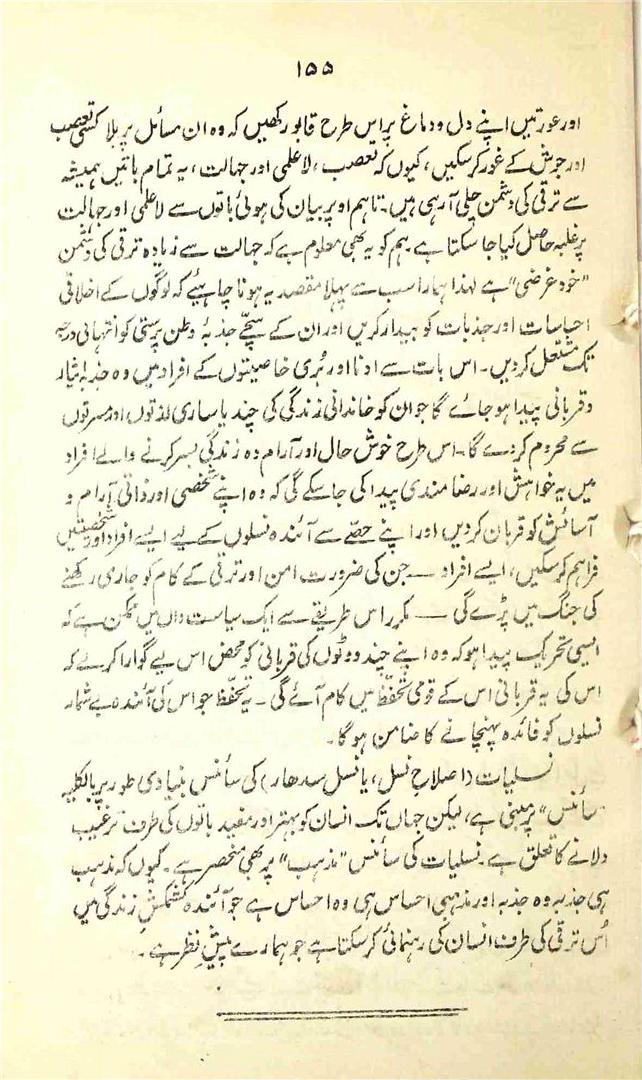 ۱۵۵
اور عورتیں اپنے دل و دماغ پر اس طرح قابو رکھیں کہ وہ ان مسائل پر بلا کسی تعصب
اور جوش کے غور کر سکیں، کیوں کہ تعصب، لاعلمی اور جہالت، یہ تمام باتیں ہمیشہ
سے ترقی کی دشمن چلی آرہی ہیں۔ تاہم اوپر بیان کی ہوئی باتوں سے لاعلمی اور جہالت
پر غلبہ حاصل کیا جا سکتا ہے ہم کو یہ بھی معلوم ہے کہ جہالت سے زیادہ ترقی کی دشمن
"خود غرضی" ہے لہذا ہمارا سب سے پہلا مقصد یہ ہونا چاہیئے کہ لوگوں کے اخلاقی
احساسات اور جذبات کو بیدار کریں اور ان کے سچّے جذبۂ وطن پرستی کو انتہائی درجہ
تک مشتعل کر دیں۔ اس بات سے ادنا اور بُری خاصیتوں کے افراد میں وہ جذبۂ ایثار
و قربانی پیدا ہو جائے گا جو ان کو خاندانی زندگی کی چند یا ساری لذتوں اور مسرتوں
سے محروم کر دے گا۔ اس طرح خوش حال اور آرام دہ زندگی بسر کرنے والے افراد
میں یہ خواہش اور رضامندی پیدا کی جا سکے گی کہ وہ اپنے شخصی اور ذاتی آرام و
آسائش کو قربان کر دیں اور اپنے حصّے سے آئندہ نسلوں کے لیے ایسے افراد اور شخصیتیں
فراہم کر سکیں، ایسے افراد — جن کی ضرورت امن اور ترقی کے کام کو جاری رکھنے
کی جنگ میں پڑے گی — مکرر اس طریقے سے ایک سیاست داں میں ممکن ہے کہ
ایسی تحریک پیدا ہو کہ وہ اپنے چند ووٹوں کی قربانی کو محض اس لیے گوارا کرلے کہ
اس کی یہ قربانی اس کے قومی تحفّظ میں کام آئے گی۔ یہ تحفّظ جو اس کی آئندہ بے شمار
نسلوں کو فائدہ پہنچانے کا ضامن ہوگا۔
نسلیات (اصلاحِ نسل، یا نسل سدھار) کی سائنس بنیادی طور پر بالکلیہ
"سائنس" پر مبنی ہے، لیکن جہاں تک انسان کو بہتر اور مفید باتوں کی طرف ترغیب
دلانے کا تعلق ہے۔ نسلیات کی سائنس "مذہب" پر بھی منحصر ہے۔ کیوں کہ مذہب
ہی جذبہ وہ جذبہ اور مذہبی احساس ہی وہ احساس ہے جو آئندہ کشمکشِ زندگی میں
اُس ترقی کی طرف انسان کی رہنمائی کر سکتا ہے جو ہمارے پیشِ نظر ہے۔